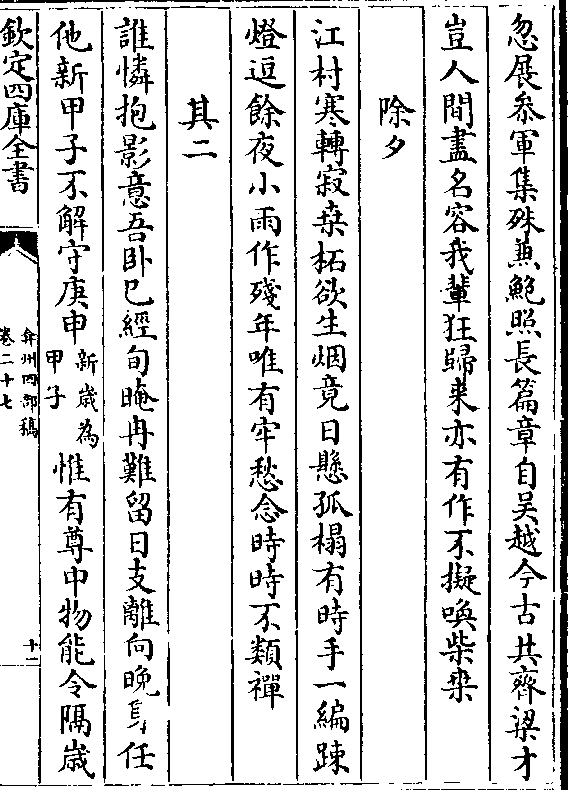 忽展叅軍集殊無鮑照長篇章自吴越今古共齊梁才
豈人間盡名容我軰狂歸来亦有作不擬喚柴桒
除夕
江村寒轉寂桒柘欲生烟竟日懸孤榻有時手一編踈
燈逗餘夜小雨作殘年唯有牢愁念時時不類禪
其二
誰憐抱影意吾卧已經旬晻冉難留日支離向晚身任
他新甲子不解守庚申新歳為甲子惟有尊中物能令隔歳
欽定四庫全書
弇州四部稿
卷二十七
十一